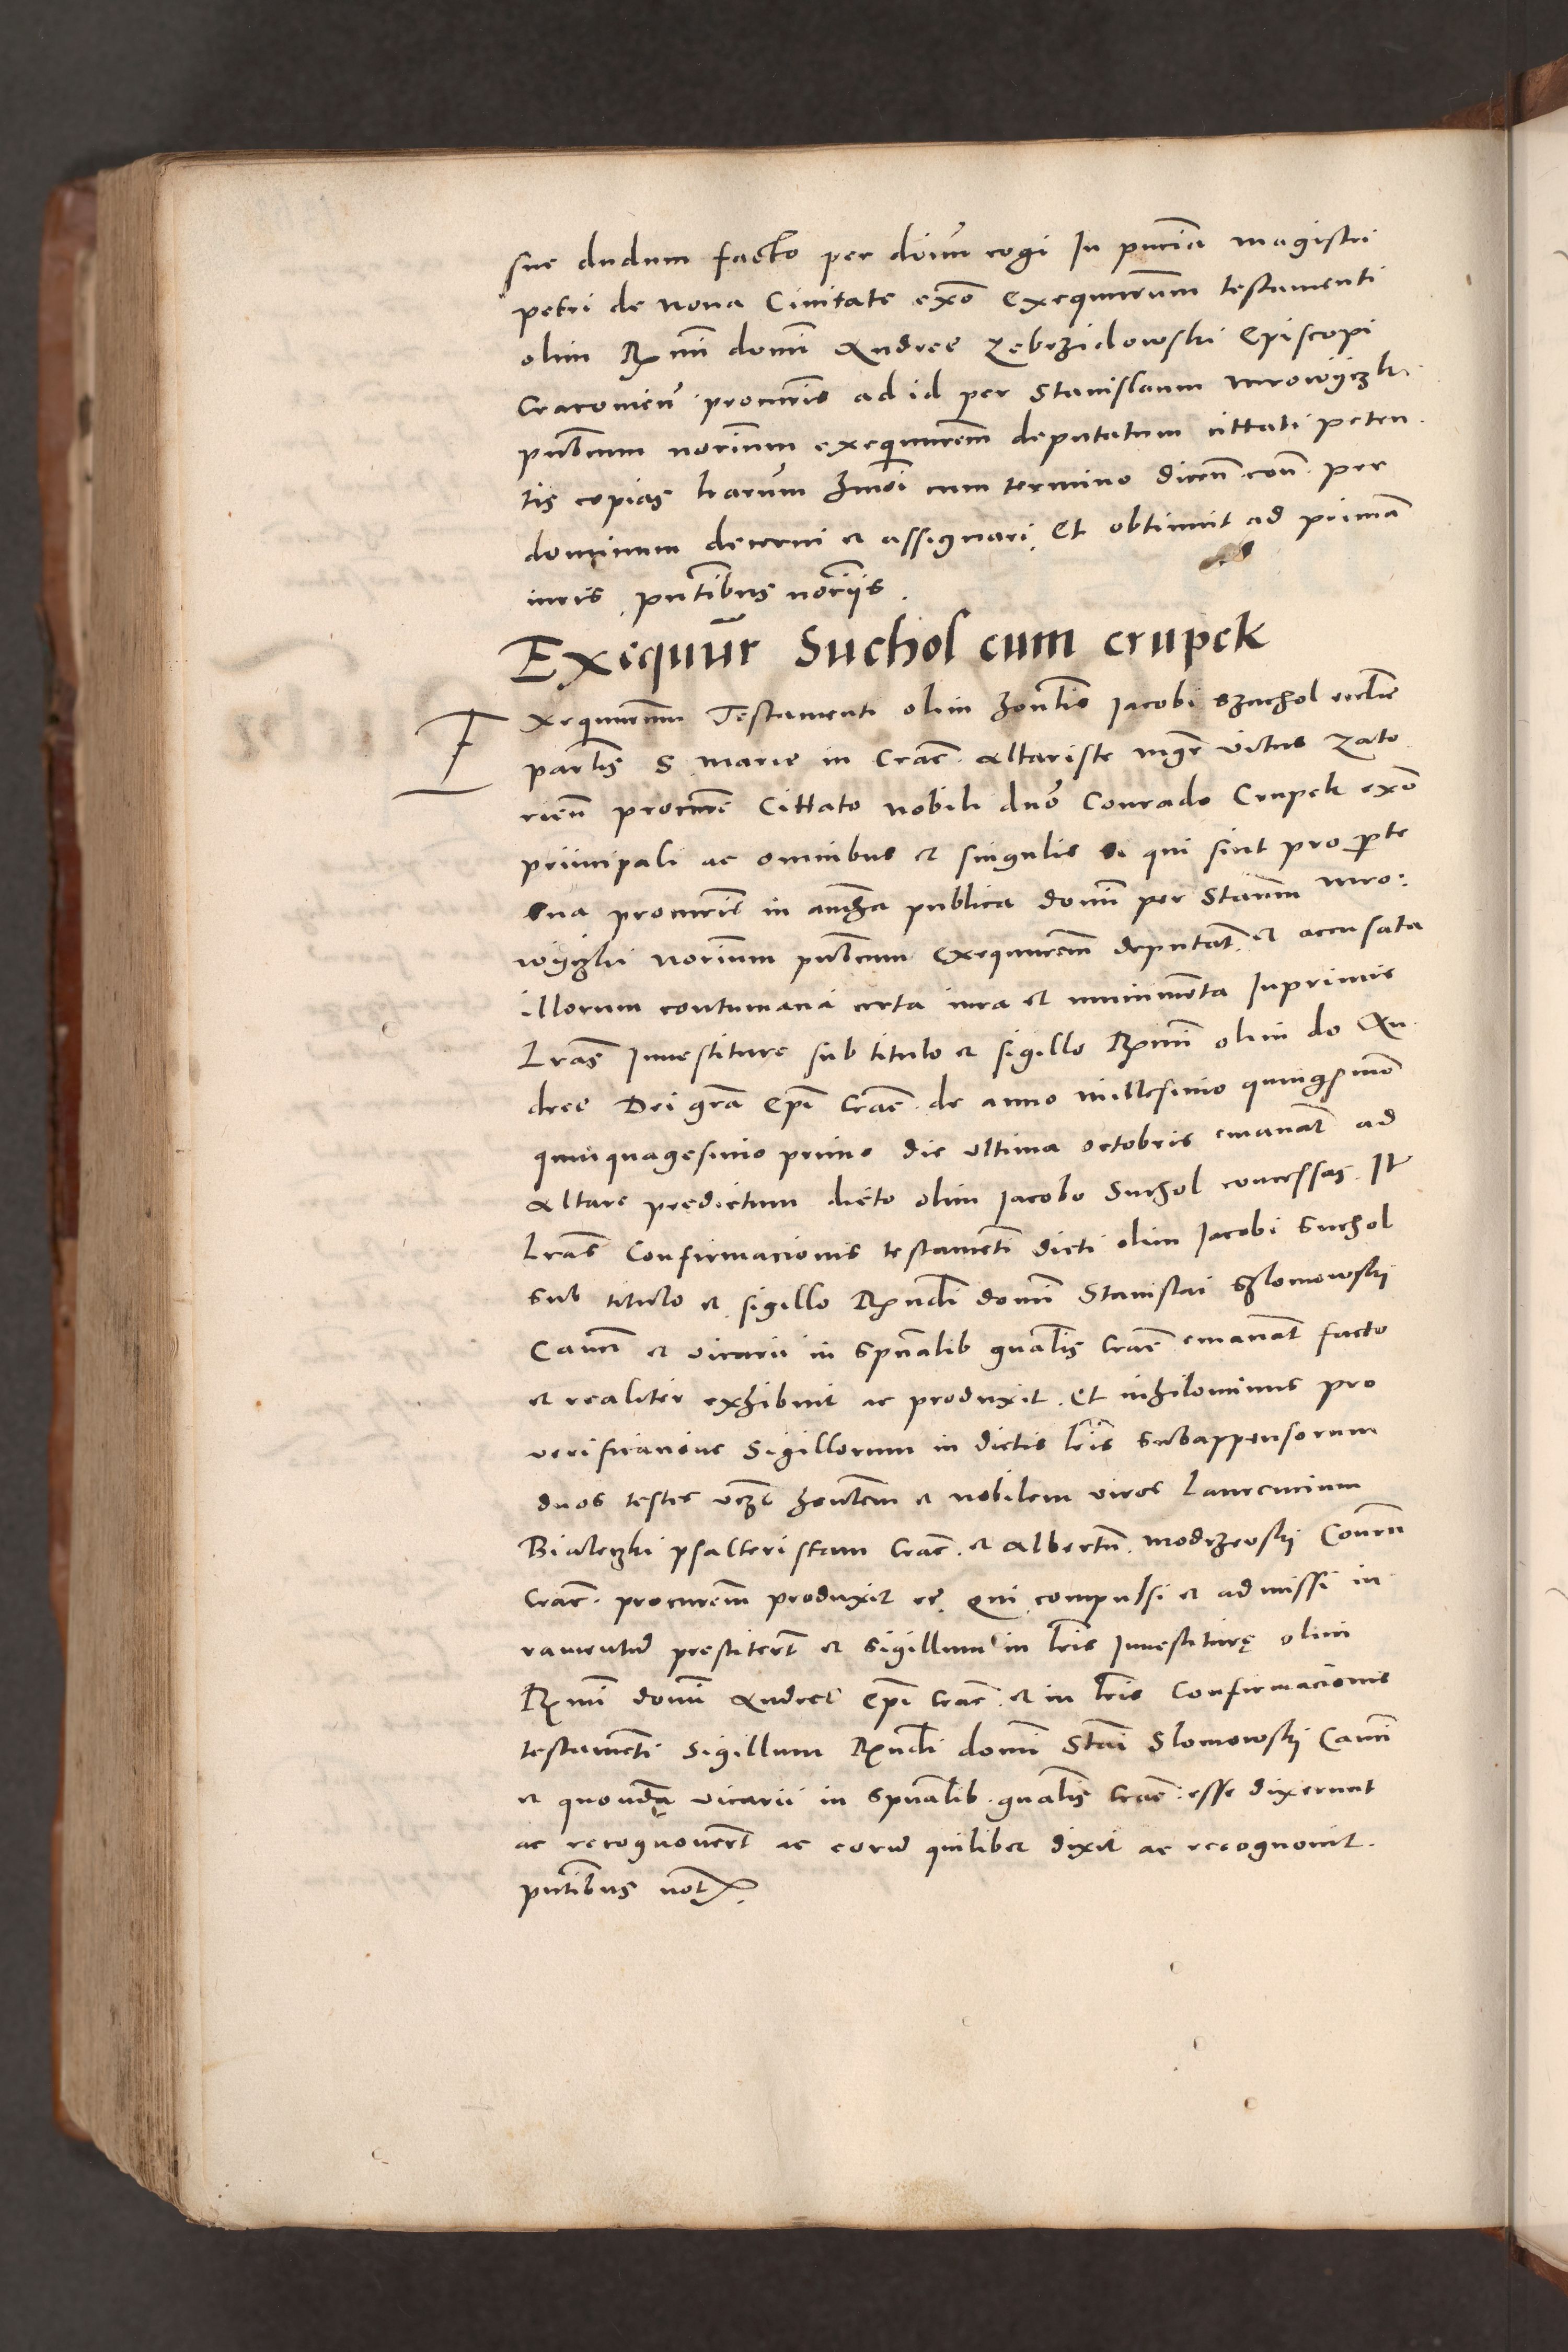 sue dudum facto per dnum cogi In pncia magistri
petri de Nova Civitate exo Exequutorum testamenti
olim Rmi domi Andree Zebrzidowski Episcopi
Cracovien procuris ad id per Stanislaum Mrowijczki
publicum norium exequutorem deputatum cittati peten
tis copias harum hmoi cum termino dicen con per
dominum decerni et assignari Et obtinuit ad prima
iuris pntibus noriis
Exequut Suchol cum crupek
Exequutorum Testamenti olim honlis Jacobi Szachol ecclie
parlis S Marie in Crac Altariste mgr victus Zato
rien procur Cittato nobili dno Conrado Crupek exo
principali ac omnibus et singulis si qui sint pro parte
sua procuris in publica domi per Stanum Mro:
wijczki Norium publicum Exequutorem deputat et accusata
illorum contumacia certa iura et munimenta Inprimis
Lras Investiture sub titulo et sigillo Rmi olim do An
dree Dei gra Epi Crac de anno millesimo quingsmo
quinquagesimo primo die ultima octobris emanat ad
Altare predictum dicto olim Jacobo Suchol concessas It
Lras Confirmacionis testamenti dicti olim Jacobi Suchol
sub titulo et sigillo Rndi domi Stanislai Slomowski
Canci et vicarii in Spualib gnalis Crac emanat facto
et realiter exhibuit ac produxit Et nihilominus pro
verificatione Sigillorum in dictis Lris Subappensorum
duos testes vcz honlem et nobilem viros Laurencium
Bialeczki psalteristam Crac et Albertu ModrzewskiConrn
Crac procurem produxit etc Qui compulsi et admissi iu
ramentu prestitert et Sigillum in Lris Investiturę olim
Rmi domi Andree Epi Crac et in Lris Confirmacionis
testamenti Sigillum Rndi domi Stai Slomowski Canci
et quonda vicarii in Spualib gnalis Crac esse dixerunt
ac recognovert ac eoru quilibet dixit ac recognovit
pntibus not